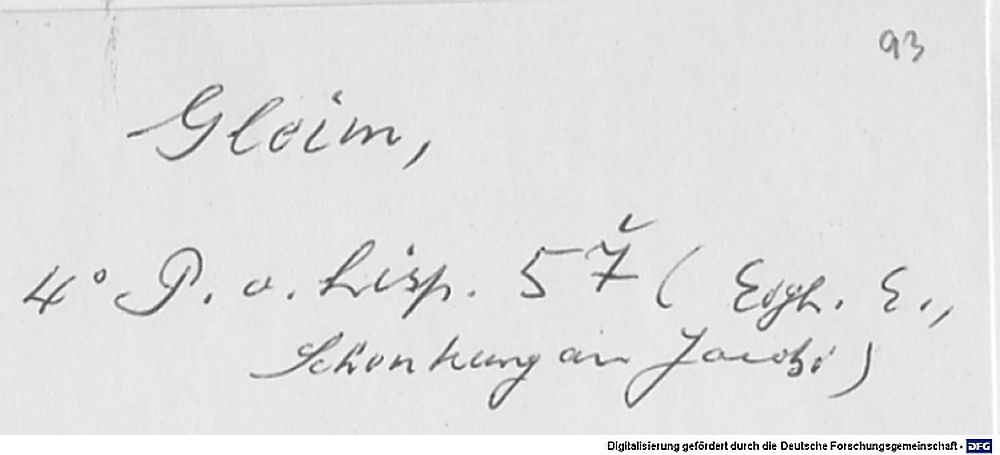 93
Gleim,
4° P. o. hisp. 57 ( E.,
Schenkung an Jacobi)
Digitalisierung gefördert durch die Deutsche Forschungsgemeinschaft - DFG